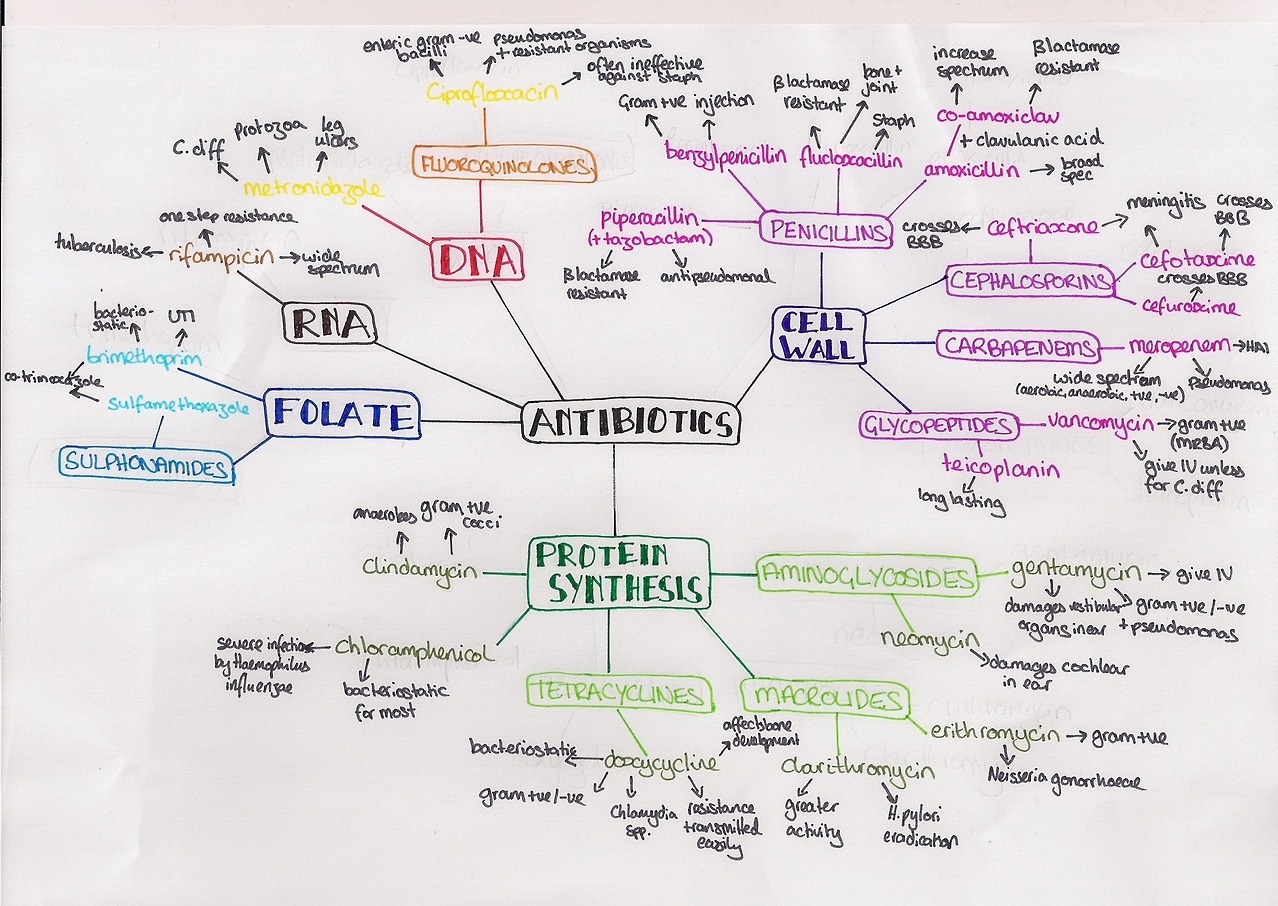 enteric gram -ve
bacilli
pseudomonas
+ resistant organisms
often ineffective
against Staph
Ciprofloxacin
FLUOROQUINOLONES
C.diff
protozoa
leg
ulcers
metronidazole
DNA
one step resistance
tuberculosis
rifampicin
wide
spectrum
RNA
bacterio-
static
UTI
trimethoprim
co-trimoxazole
sulfamethoxazole
SULPHONAMIDES
FOLATE
ANTIBIOTICS
Gram +ve
injection
benzylpenicillin
βlactamase
resistant
bone +
joint
Staph
flucloxacillin
increase
spectrum
βlactamase
resistant
co-amoxiclav
+ clavulanic acid
amoxicillin
broad
spec
piperacillin
(+tazobactam)
βlactamase
resistant
antipseudomonal
PENICILLINS
crosses
BBB
ceftriaxone
meningitis
crosses
BBB
cefotaxime
crosses BBB
cefuroxime
CEPHALOSPORINS
CELL
WALL
CARBAPENEMS
meropenem
HAI
wide spectrum
(aerobic, anaerobic, +ve, -ve)
Pseudomonas
GLYCOPEPTIDES
vancomycin
gram +ve
(MRSA)
give IV unless
for C.diff
teicoplanin
long lasting
PROTEIN
SYNTHESIS
anaerobes
gram +ve
cocci
Clindamycin
severe infection
by Haemophilus
influenzae
Chloramphenicol
bacteriostatic
for most
TETRACYCLINES
bacteriostatic
doxycycline
affects bone
development
gram +ve/-ve
Chlamydia
spp.
resistance
transmitted
easily
MACROLIDES
erithromycin
gram +ve
Neisseria gonorrhaeae
Clarithromycin
greater
activity
H.pylori
eradication
AMINOGLYCOSIDES
gentamycin
give IV
damages vestibular
organs in ear
gram +ve/-ve
+ pseudomonas
neomycin
damages cochlear
in ear